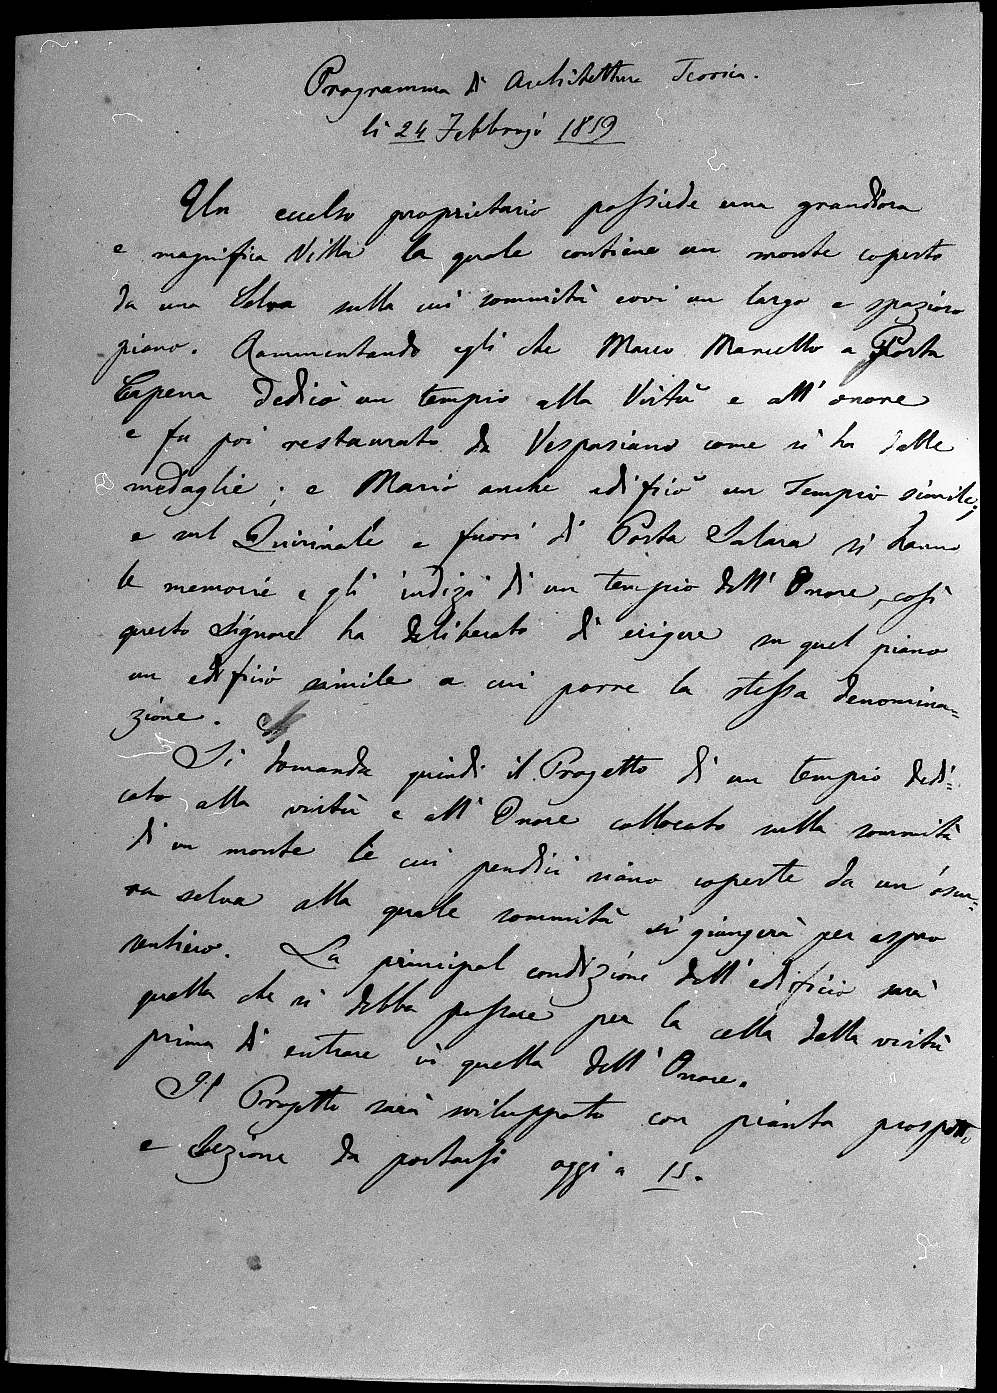 Programma di Architettura Teorica.
li 24 Febbrajo 1859
Un eccelso proprietario possiede una grandiosa
e magnifica Villa la quale contiene un monte coperto
da una Selva sulla cui sommità evvi un largo e spazioso
piano. Rammentando egli che Marco Marcello a Porta
Capena dedicò un tempio alla Virtù e all' onore
e fu poi restaurato da Vespasiano come si ha dalle
medaglie; e Mario anche edificò un Tempio simile;
e sul Quirinale e fuori di Porta Salara si hanno
le memorie e gli indizi di un tempio dell' Onore, così
questo Signore ha deliberato di erigere su quel piano
un edificio simile a cui porre la stessa denomina=
zione.
Si domanda quindi il Progetto di un tempio dedi=
cato alla virtù e all' Onore collocato sulla sommità
di un monte le cui pendici siano coperte da un' oscu=
ra selva alla quale sommità si giungerà per aspro
sentiero. La principal condizione dell' edificio sarà
quella che si debba passare per la cella della virtù
prima di entrare in quella dell' Onore.
Il Progetto sarà sviluppato con pianta prospetto,
e Sezione da portarsi oggi a 15.